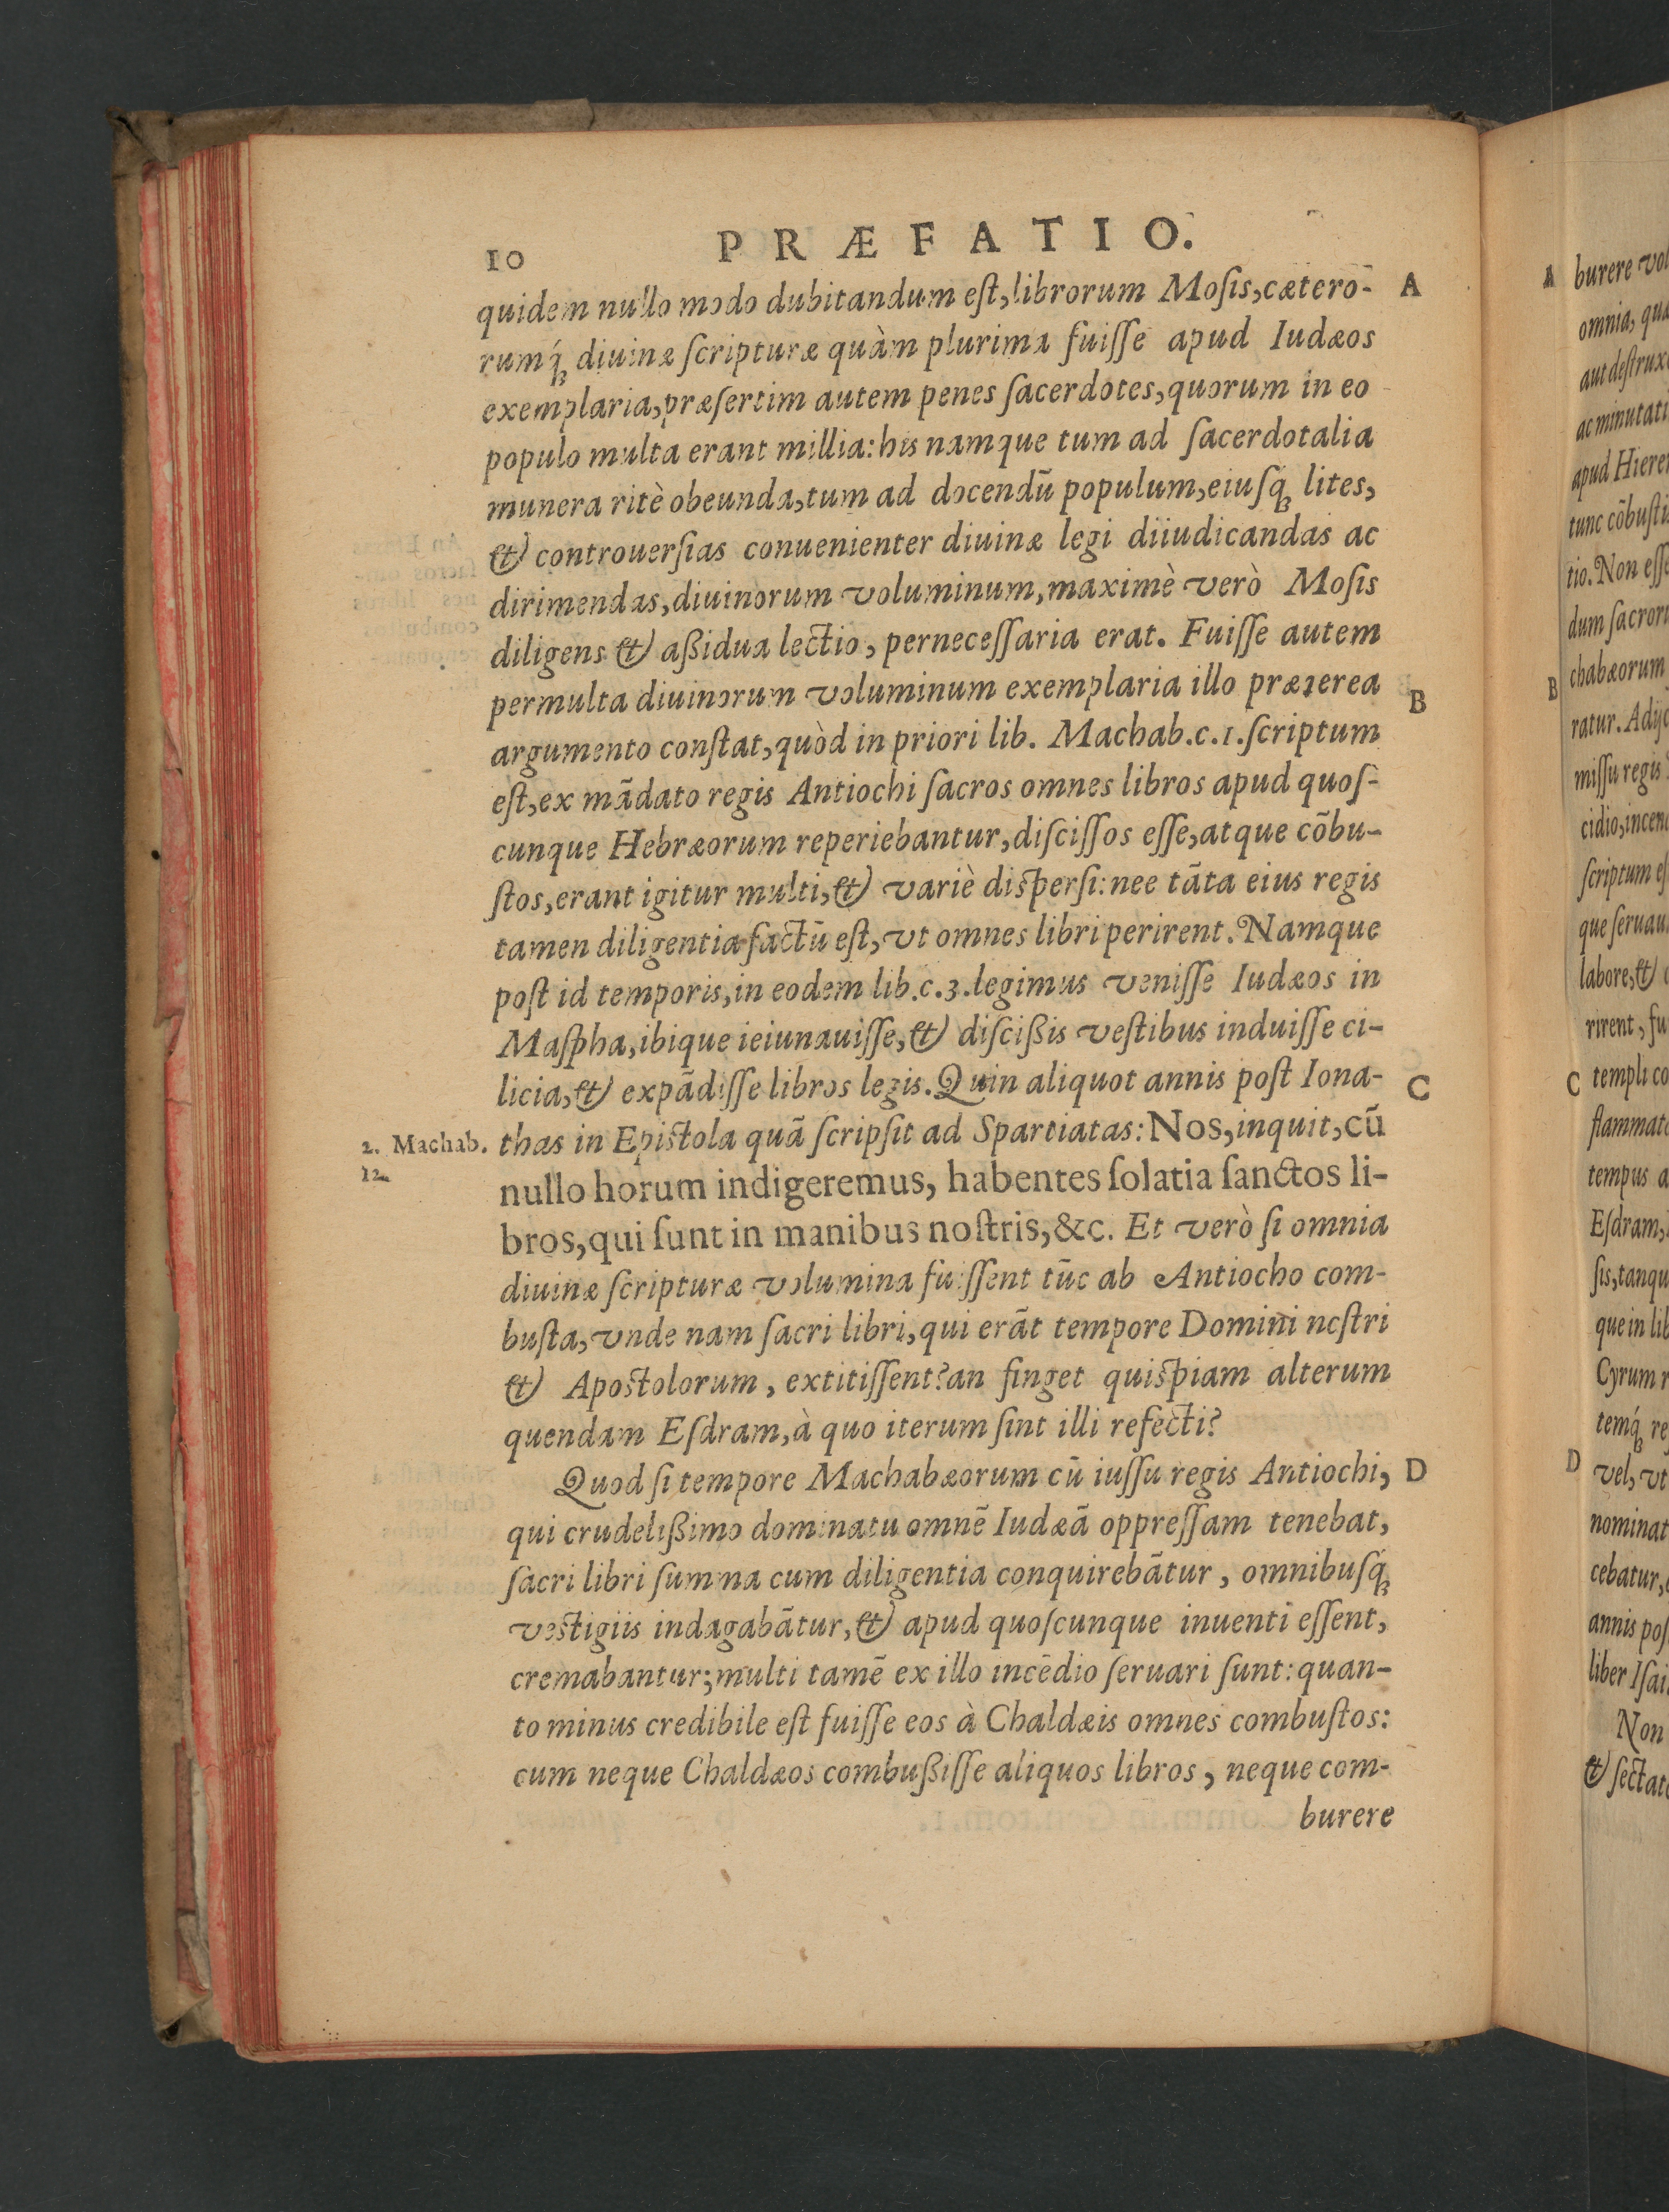 10 PRÆFATIO.
quidem nullo modo dubitandum eſt, librorum Moſis, cætero- A
rumq́ꝫ diuinæ ſcripturæ quàm plurima fuiſſe apud Iudæos
exemplaria, præſertim autem penes ſacerdotes, quorum in eo
populo multa erant millia: his namque tum ad ſacerdotalia
munera ritè obeunda, tum ad docendū populum, eiuſq́ꝫ lites,
& controuerſias conuenienter diuinæ legi diiudicandas ac
dirimendas, diuinorum voluminum, maximè verò Moſis
diligens & aßidua lectio, perneceſſaria erat. Fuiſſe autem
permulta diuinorum voluminum exemplaria illo præterea B
argumento conſtat, quòd in priori lib. Machab. c. 1. ſcriptum
eſt, ex mādato regis Antiochi ſacros omnes libros apud quoſ-
cunque Hebræorum reperiebantur, diſciſſos eſſe, atque cōbu-
ſtos, erant igitur multi, & variè diſperſi: nee tāta eius regis
tamen diligentia factū eſt, vt omnes libri perirent. Namque
poſt id temporis, in eodem lib. c. 3. legimus veniſſe Iudæos in
Maſpha, ibique ieiunauiſſe, & diſcißis veſtibus induiſſe ci-
licia, & expādiſſe libros legis. Quin aliquot annis poſt Iona- C
2. Machab. 12.
thas in Epiſtola quā ſcripſit ad Spartiatas: Nos, inquit, cū
nullo horum indigeremus, habentes ſolatia ſanctos li-
bros, qui ſunt in manibus noſtris, &c. Et verò ſi omnia
diuinæ ſcripturæ volumina fuiſſent tūc ab Antiocho com-
buſta, vnde nam ſacri libri, qui erāt tempore Domini noſtri
& Apoſtolorum, extitiſſent? an finget quiſpiam alterum
quendam Eſdram, à quo iterum ſint illi refecti?
Quod ſi tempore Machabæorum cū iuſſu regis Antiochi, D
qui crudelißimo dominatu omnē Iudæā oppreſſam tenebat,
ſacri libri ſumma cum diligentia conquirebātur, omnibuſq́ꝫ
veſtigiis indagabātur, & apud quoſcunque inuenti eſſent,
cremabantur; multi tamē ex illo incēdio ſeruari ſunt: quan-
to minus credibile eſt fuiſſe eos à Chaldæis omnes combuſtos:
cum neque Chaldæos combußiſſe aliquos libros, neque com-
burere
A burere vol
omnia, quæ
aut deſtrux
ac minutati
apud Hiere
tunc cōbuſti
tio. Non eſſe
dum ſacror
B chabæorum
ratur. Adijc
miſſu regis
cidio, incen
ſcriptum eſ
que ſeruau
labore, &
rirent, fu
C templi co
flammat
tempus a
Eſdram,
ſis, tanqu
que in lib
Cyrum r
temq́ꝫ re
D vel, vt
nominat
cebatur,
annis poſ
liber Iſai
Non
& ſectat